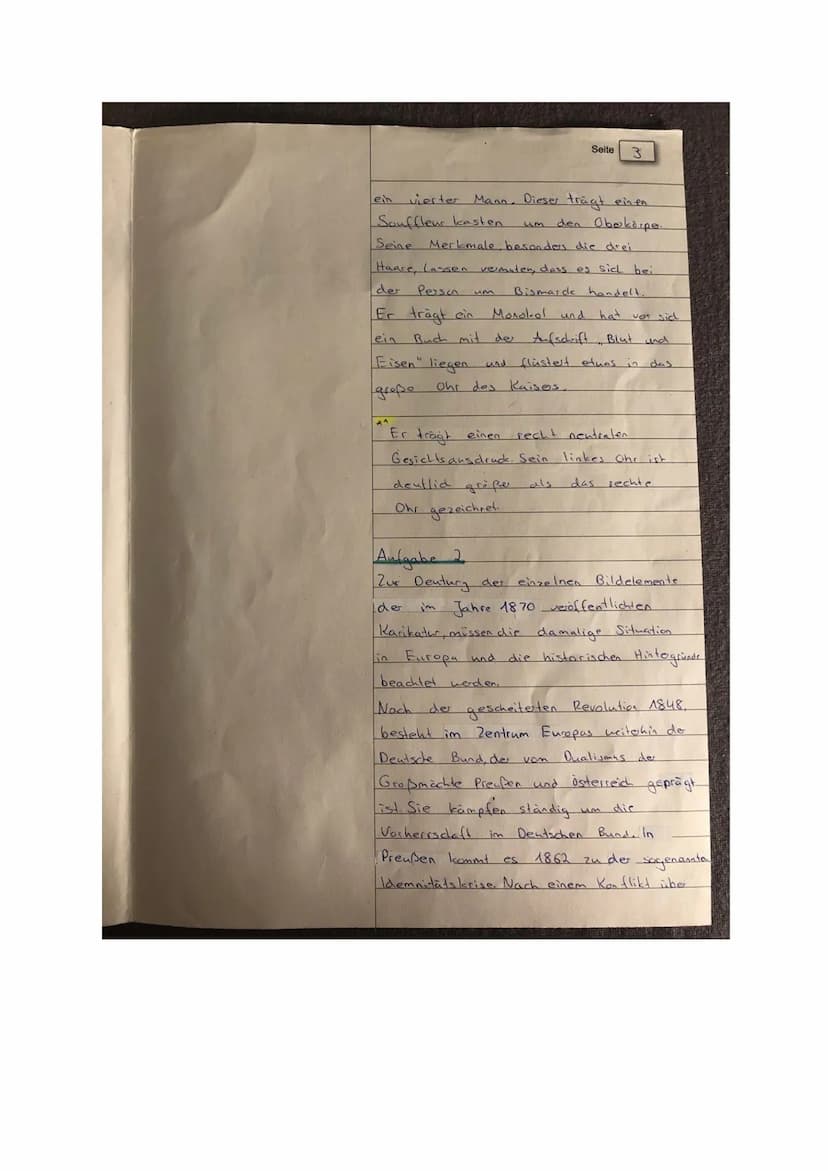 Seite 3
ein vierter Mann. Dieser trägt einen
Souffleurkasten um den Oberkörpe.
Seine Merkmale, besonders die drei
Haare, lassen vermuten, dass es sich bei
der Person um Bismarck handelt.
Er trägt ein Monokol und hat vor sich
ein Buch mit der Aufschrift „Blut und
Eisen" liegen und flüstert etwas in das
große Ohr des Kaisers.
**
Er trägt einen recht neutralen
Gesichtsausdruck. Sein linkes Ohr ist
deutlich größer als das rechte
Ohr gezeichnet.
Aufgabe 2
Zur Deutung der einzelnen Bildelemente
der im Jahre 1870 veröffentlichten
Karikatur, müssen die damalige Situation
in Europa und die historischen Hintergründe
beachtet werden.
Nach der gescheiterten Revolution 1848,
besteht im Zentrum Europas weiterhin der
Deutsche Bund, der vom Dualismus der
Großmächte Preußen und Österreich geprägt
ist. Sie kämpfen ständig um die
Vorherrschaft im Deutschen Bund. In
Preußen kommt es 1862 zu der sogenannten
Idemnitätskrise. Nach einem Konflikt über